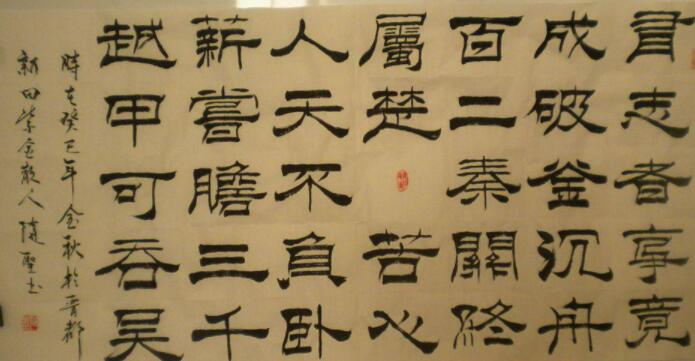 有志者事竟
成破釜沉舟
百二秦關終
屬楚 苦心
人天不負卧
薪嘗膽三千
越甲可吞吴
時在癸巳年金秋於晋都
新田紫金散人 书